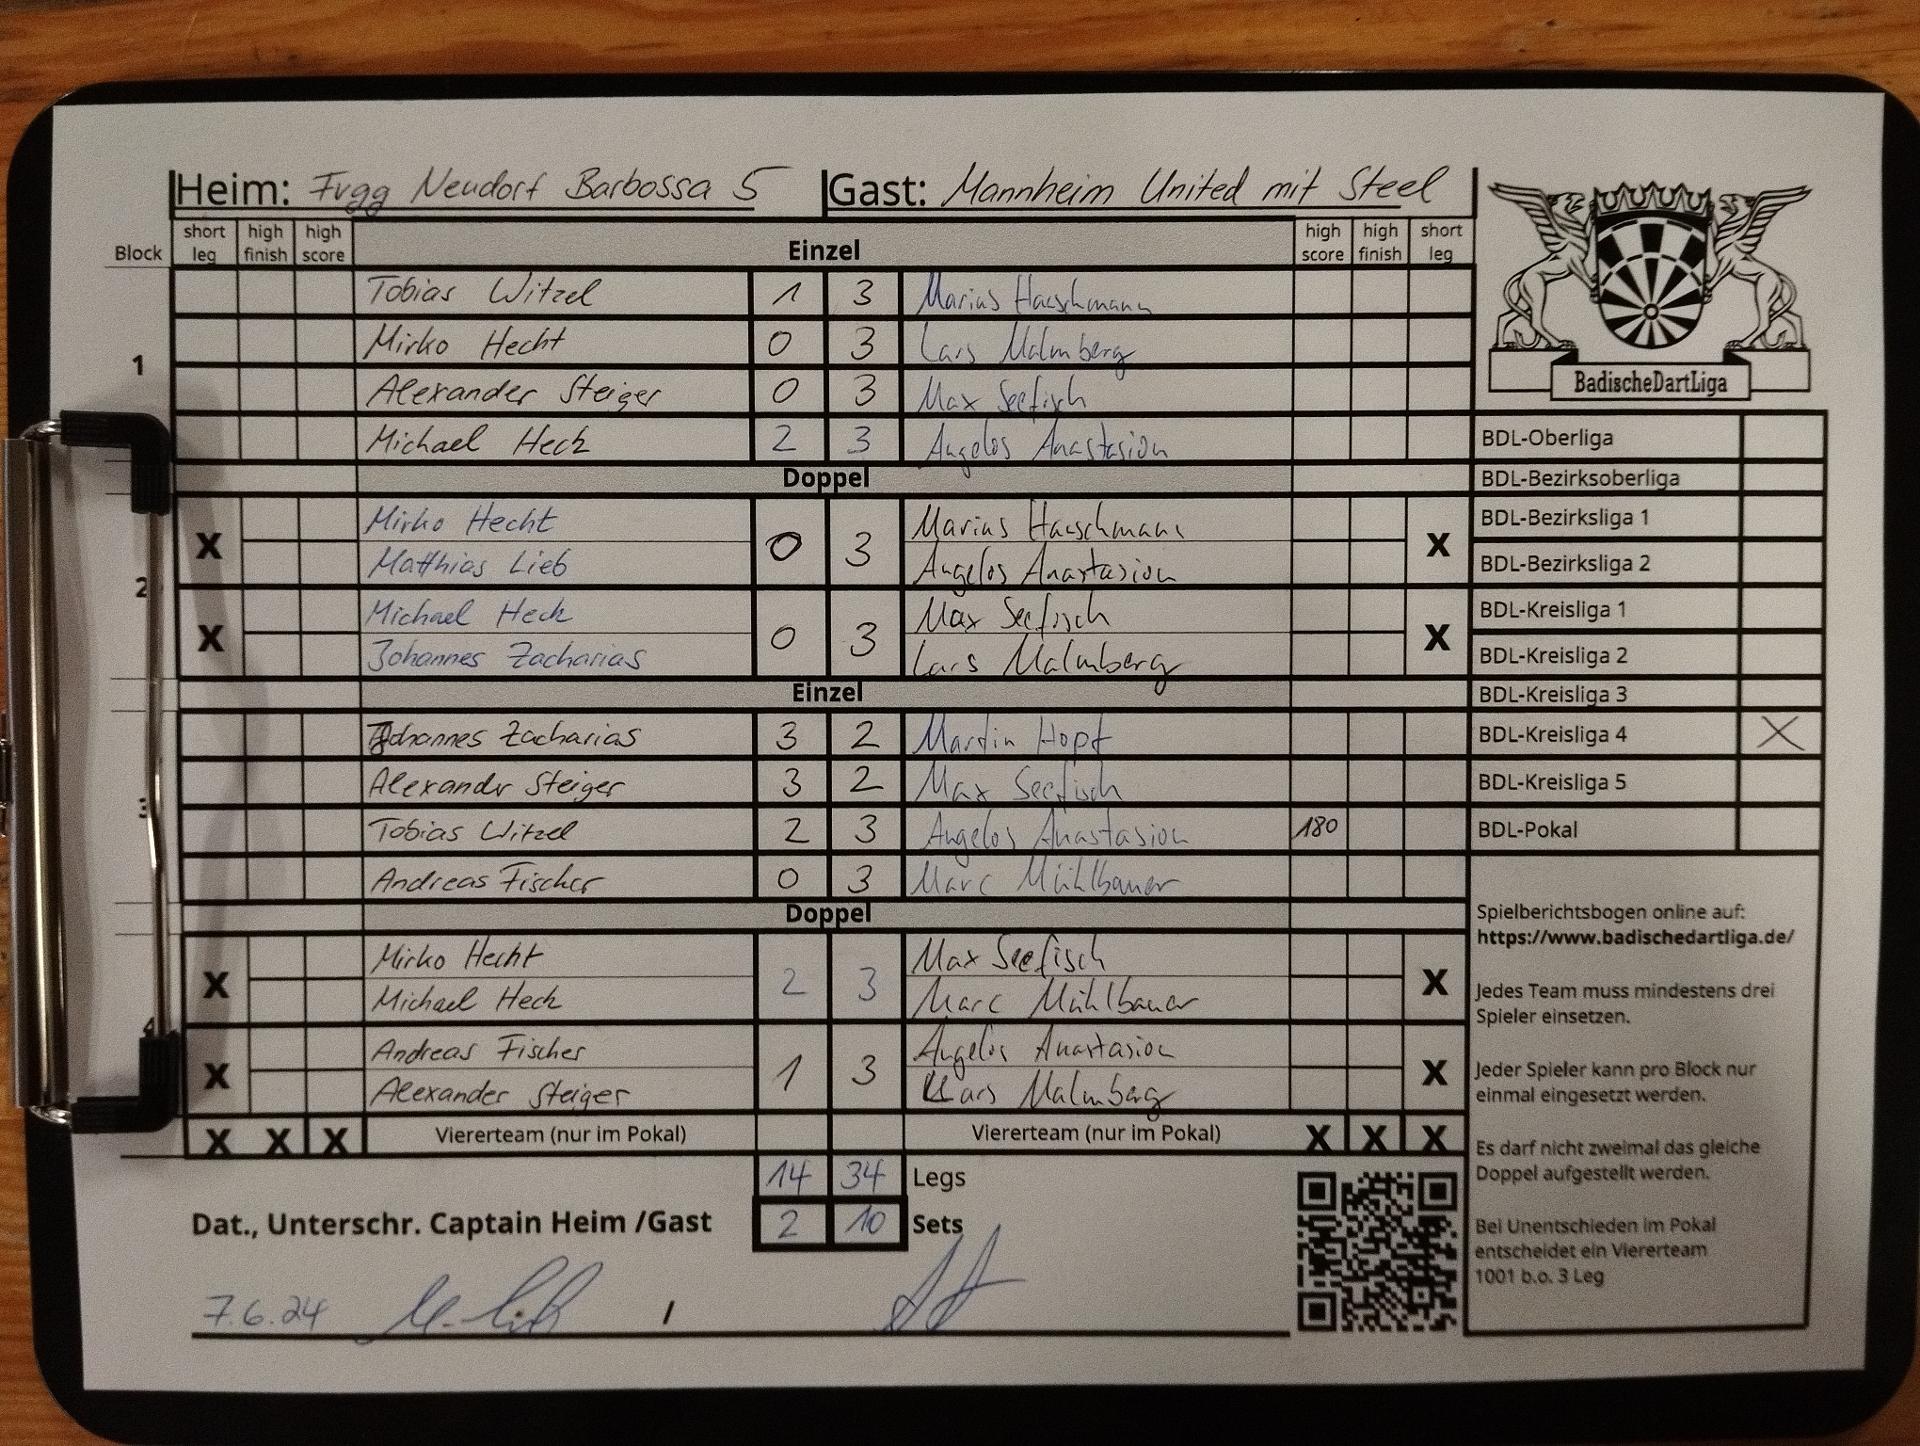 Heim: Fvgg Neudorf Barbossa 5 Gast: Mannheim United mit Steel
Block short leg high finish high score Einzel high score high finish short leg
1
Tobias Witzel 1 3 Marius Haeschmann
Mirko Hecht 0 3 Lars Malmberg
Alexander Steiger 0 3 Max Seefisch
Michael Heck 2 3 Angelos Anastasiou
Doppel
2
X Mirko Hecht 0 3 Marius Haeschmann X
Matthias Lieb Angelos Anastasiou
X Michael Heck 0 3 Max Seefisch X
Johannes Zacharias Lars Malmberg
Einzel
3
Johannes Zacharias 3 2 Martin Hopf
Alexander Steiger 3 2 Max Seefisch
Tobias Witzel 2 3 Angelos Anastasiou 180
Andreas Fischer 0 3 Marc Mühlbauer
Doppel
4
X Mirko Hecht 2 3 Max Seefisch X
Michael Heck Marc Mühlbauer
X Andreas Fischer 1 3 Angelos Anastasiou X
Alexander Steiger Lars Malmberg
X X X Viererteam (nur im Pokal) Viererteam (nur im Pokal) X X X
14 34 Legs
Dat., Unterschr. Captain Heim /Gast 2 10 Sets
7.6.24 /
BadischeDartLiga
BDL-Oberliga
BDL-Bezirksoberliga
BDL-Bezirksliga 1
BDL-Bezirksliga 2
BDL-Kreisliga 1
BDL-Kreisliga 2
BDL-Kreisliga 3
BDL-Kreisliga 4 X
BDL-Kreisliga 5
BDL-Pokal
Spielberichtsbogen online auf:
https://www.badischedartliga.de/
Jedes Team muss mindestens drei
Spieler einsetzen.
Jeder Spieler kann pro Block nur
einmal eingesetzt werden.
Es darf nicht zweimal das gleiche
Doppel aufgestellt werden.
Bei Unentschieden im Pokal
entscheidet ein Viererteam
1001 b.o. 3 Leg